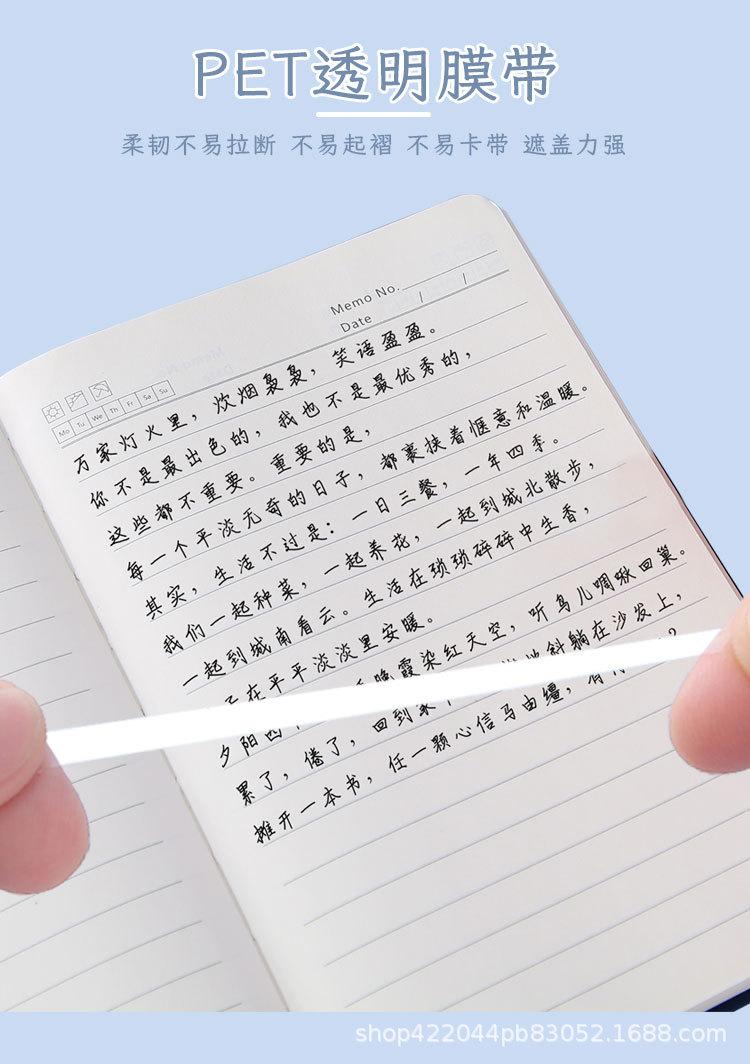 PET透明膜带
柔韧不易拉断 不易起褶 不易卡带 遮盖力强
Memo No.
Date / /
Mo Tu We Th Fr Sa Su
万家灯火里，炊烟袅袅，笑语盈盈。
你不是最出色的，我也不是最优秀的，
这些都不重要。重要的是，
每一个平淡无奇的日子，都裹挟着惬意和温暖。
其实，生活不过是：一日三餐，一年四季。
我们一起种菜，一起养花，一起到城北散步，
一起到城南看云。生活在琐琐碎碎中生香，
在平平淡淡里安暖。
夕阳西 晚霞染红天空，听鸟儿啁啾回巢。
累了，倦了，回到家 斜躺在沙发上，
摊开一本书，任一颗心信马由缰，
shop422044pb83052.1688.com